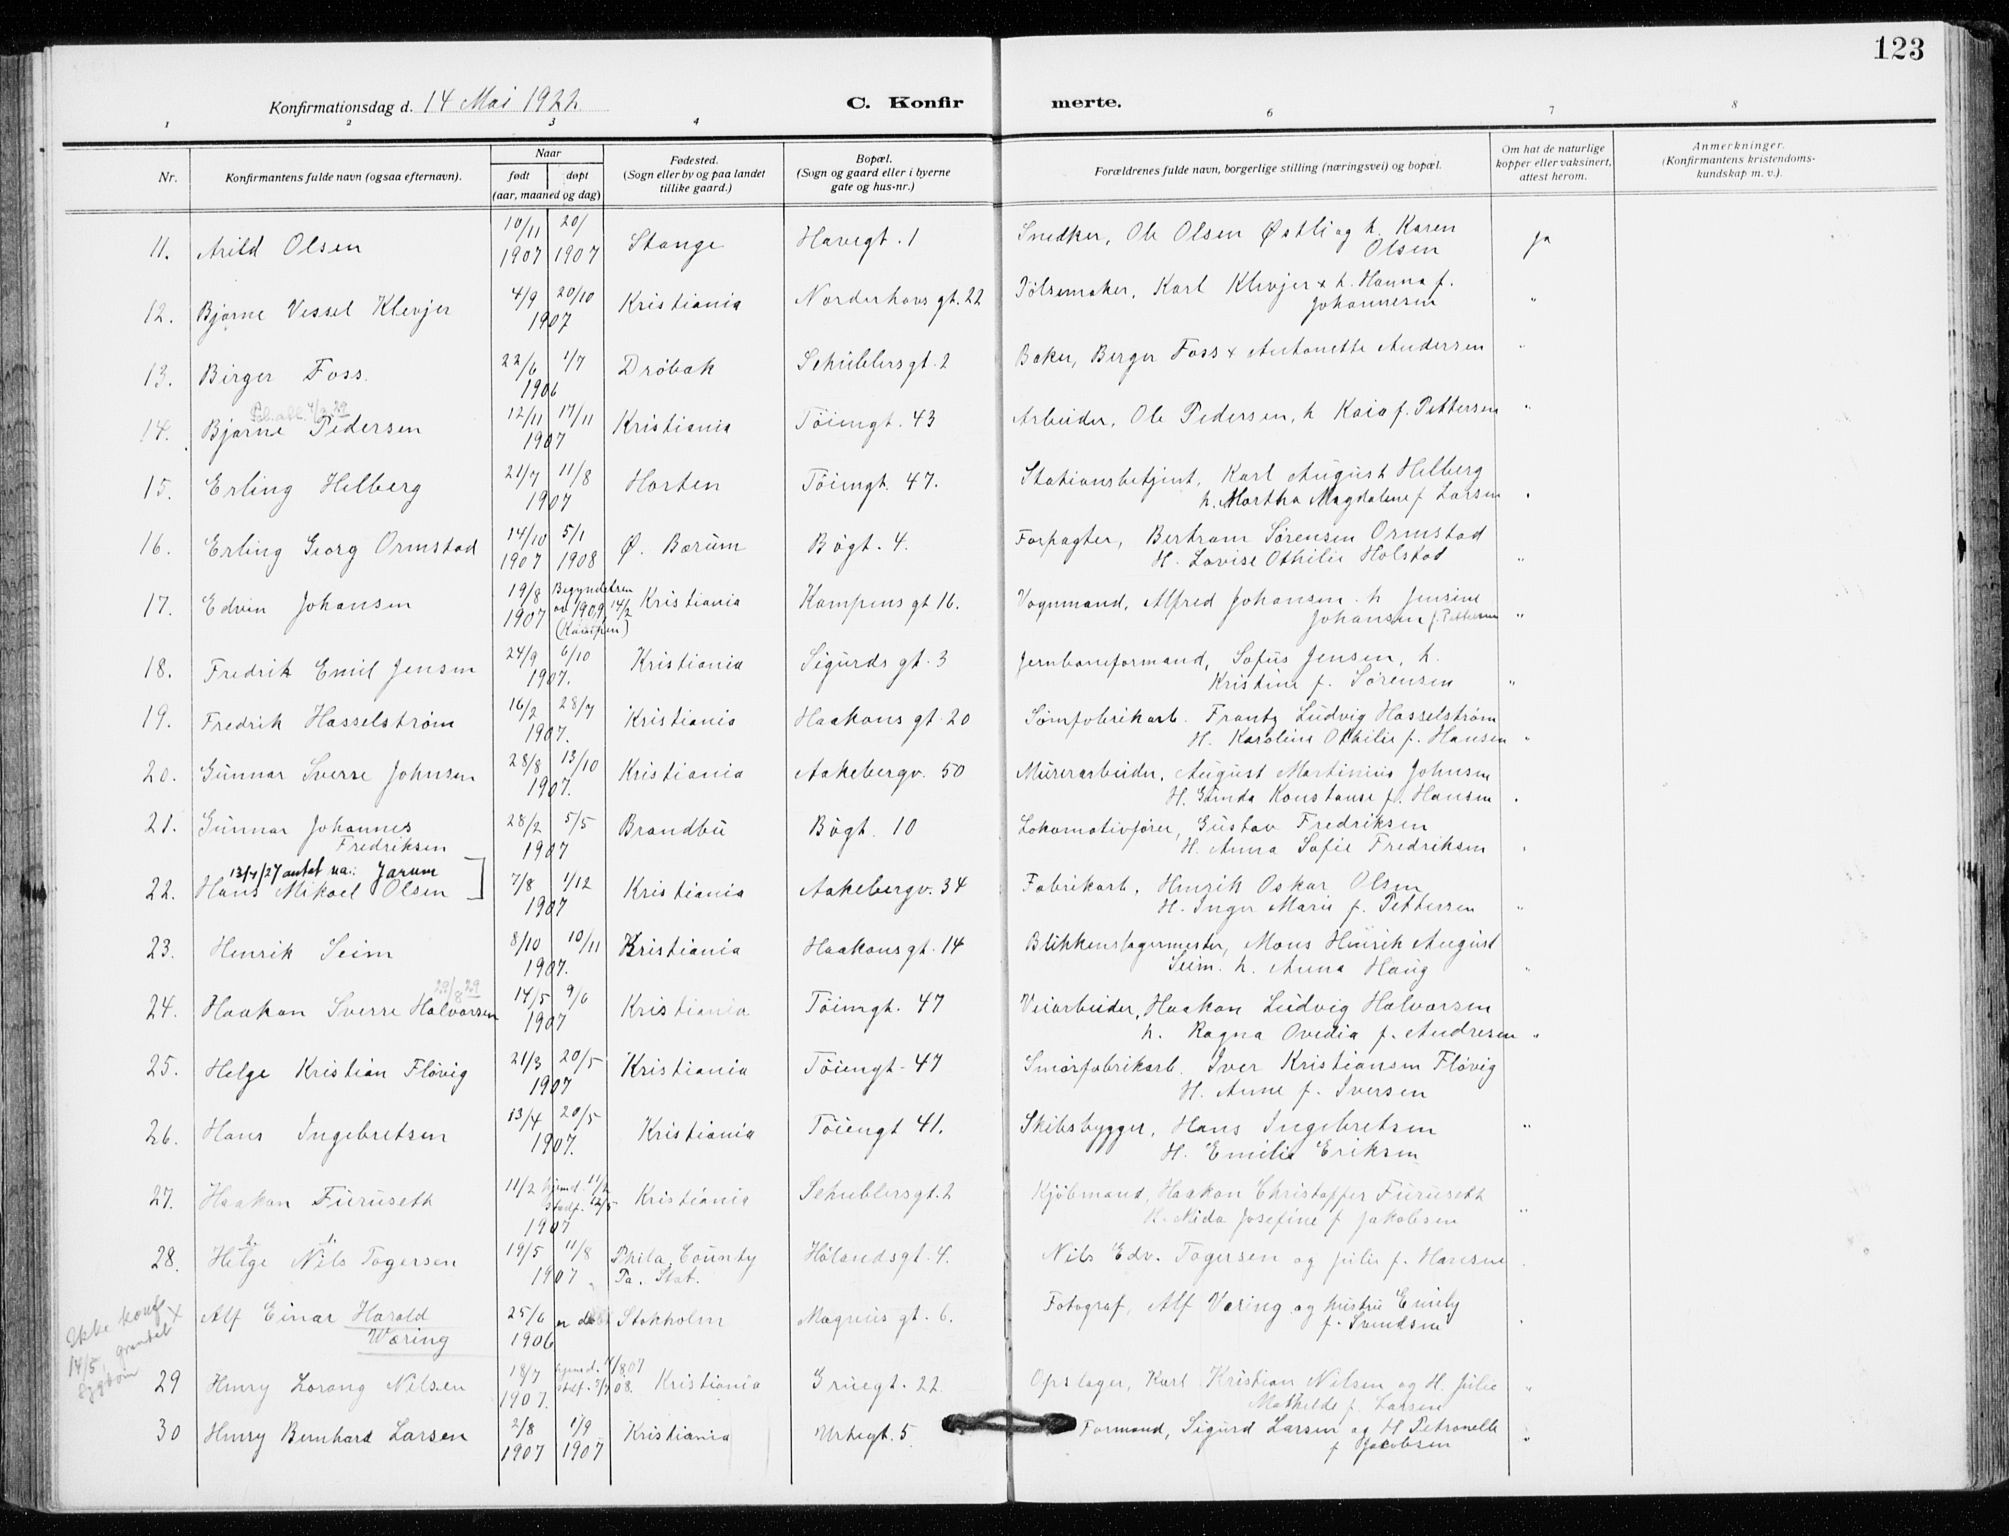 123
Konfirmationsdag d. 14 Mai 1922
C. Konfirmerte.
1 2 3 4 6 7 8
Nr.
Konfirmantens fulde navn (ogsaa efternavn).
Naar
født døpt
(aar, maaned og dag)
Fødested.
(Sogn eller by og paa landet
tillike gaard.)
Bopæl.
(Sogn og gaard eller i byerne
gate og hus-nr.)
Forældrenes fulde navn, borgerlige stilling (næringsvei) og bopæl.
Om hat de naturlige
kopper eller vaksinert,
attest herom.
Anmerkninger.
(Konfirmantens kristendoms-
kundskap m. v.).
11. Arild Olsen 10/11 1907 20/ 1907 Stange Havegt. 1 Snedker, Ole Olsen Østli og h. Karen
Olsen ja
12. Bjarne Vessel Klevjer 4/9 20/10 1907 Kristiania Norderhovs gt. 22 Pølsemaker, Karl Klevjer x h. Hanna f.
Johannesen "
13. Birger Foss. 22/6 1/7 1906 Drøbak Schüblersgt. 2 Baker, Berger Foss x Antonette Andersen "
4/3 29
14. Bjarne Pedersen 12/11 17/11 1907 Kristiania Tøiengt. 43 Arbeider, Ole Pedersen, h Kaia f. Pettersen "
15. Erling Helberg 21/7 11/8 1907 Horten Tøiengt. 47. Stationsbetjent, Karl August Helberg
h. Martha Magdalene f Larsen "
16. Erling Georg Ormstad 14/10 1907 5/1 1908 Ø. Bærum Bøgt. 4. Forpagter, Bertram Sørensen Ormstad
H. Lovise Othilie Holstad "
17. Edvin Johansen 19/8 1907 Begyndelsen
av 1909 14/2
(Kampen) Kristiania Kampens gt 16. Vognmand, Alfred Johansen. h Jensine
Johansen f. Pettersen "
18. Fredrik Emil Jensen 24/9 6/10 1907. Kristiania Sigurds gt. 3 Jernbaneformand, Sofus Jensen, h.
Kristine f. Sørensen "
19. Fredrik Hasselstrøm 16/2 28/7 1907. Kristiania Haakons gt. 20 Sømfabrikarb. Frantz Ludvig Hasselstrøm
H. Karoline Othilie f. Hansen "
20. Gunnar Sverre Johnsen 28/8 13/10 1907. Kristiania Aakebergv. 50 Murerarbeider, August Martinius Johnsen
H. Gunda Konstanse f. Hansen "
21. Gunnar Johannes
Fredriksen 28/2 5/5 1907 Brandbu Bøgt. 10 Lokomotivfører, Gustav Fredriksen
H. Anna Sofie Fredriksen "
13/4/27 antat na.: Jarum
22. Hans Mikael Olsen 7/8 1/12 1907 Kristiania Aakebergv. 34 Fabrikarb. Henrik Oskar Olsen
H. Inger Marie f. Pettersen "
23. Henrik Seim 8/10 10/11 1907. Kristiania Haakonsgt. 14 Blikkenslagermester, Mons Henrik August
Seim. h. Anna Haug "
29/8 29
24. Haakon Sverre Halvorsen 14/5 9/6 1907 Kristiania Tøiengt. 47 Veiarbeider, Haakon Ludvig Halvorsen
h. Ragna Ovedia f. Andresen "
25. Helge Kristian Fløvig 21/3 20/5 1907 Kristiania Tøiengt. 47 Smørfabrikarb. Iver Kristiansen Fløvig
H. Anne f. Iversen
26. Hans Ingebretsen 13/4 20/5 1907. Kristiania Tøiengt 41. Skibsbygger, Hans Ingebretsen "
H. Emilie Eriksen
27. Haakon Furuseth 11/2 hjemd. 11/2
Stadf. 12/5 1907 Kristiania Schüblersgt. 2 Kjøbmand, Haakon Christoffer Furuseth
H. Aida Josefine f Jakobsen "
28. Helge Nils Togersen 19/5 11/8 1907 Phila County
Pa. Stat. Hølandsgt. 4. Nils Edv. Togersen og Julie f. Hansen
Ikke konf x
14/5, grundet
sygdom
Alf Einar Harald
Wæring 25/6 1906 Stokholm Magnus gt. 6. Fotograf, Alf Væring og hustru Emily
f. Svendsen
29 Henry Lorang Nilsen 18/7 1907. hjemd. 4/8 07
stdf. 08. Kristiania Gruegt. 22 Opslager, Karl Kristian Nilsen og H. Julie
Mathilde f. Larsen "
30 Henry Bernhard Larsen 2/8 1907 1/9 1907 Kristiania Urtegt. 5. Formand, Sigurd Larsen og H Petronelle
f Jacobsen "